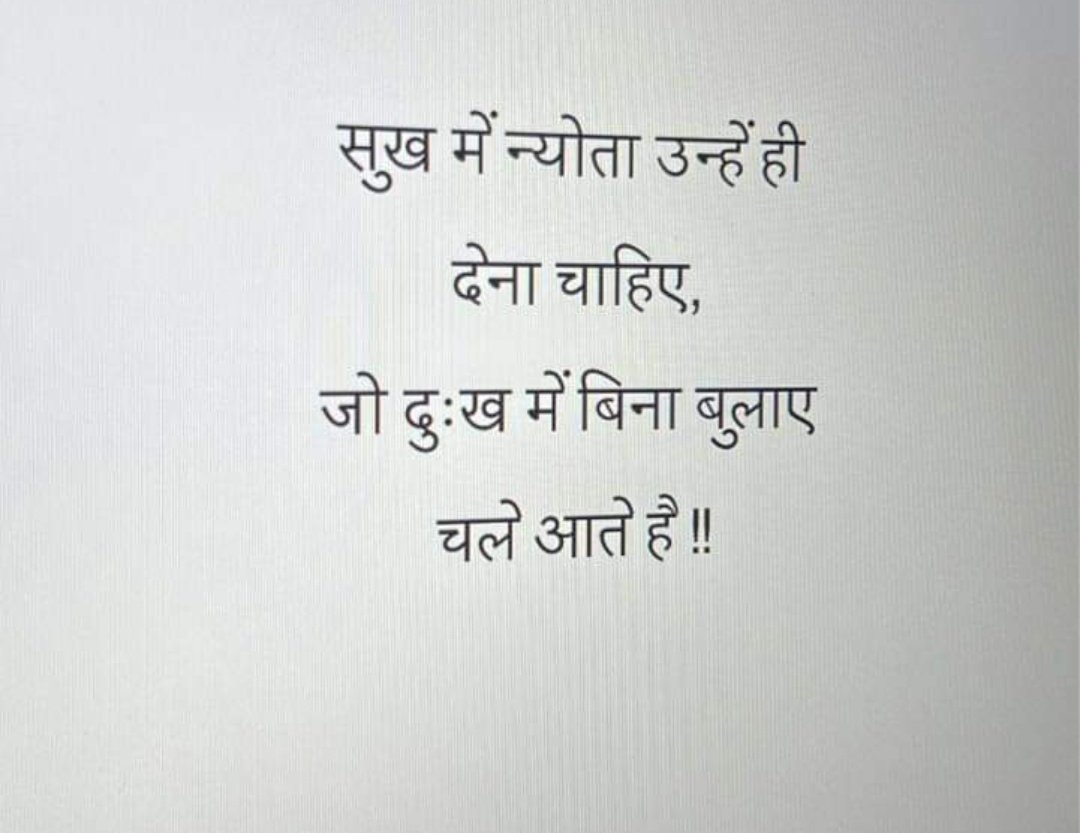 सुख में न्योता उन्हें ही
देना चाहिए,
जो दुःख में बिना बुलाए
चले आते है !!